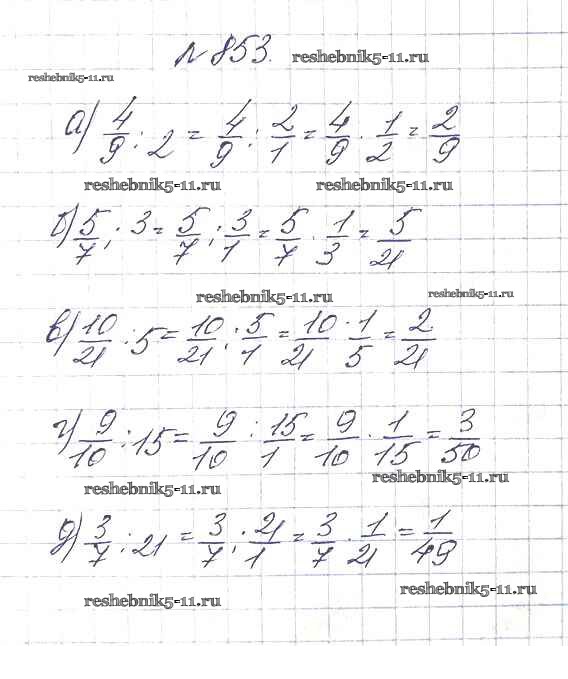 № 853. reshebnik5-11.ru
reshebnik5-11.ru
а) 4/9 : 2 = 4/9 : 2/1 = 4/9 · 1/2 = 2/9
reshebnik5-11.ru reshebnik5-11.ru
б) 5/7 : 3 = 5/7 : 3/1 = 5/7 · 1/3 = 5/21
reshebnik5-11.ru reshebnik5-11.ru
в) 10/21 : 5 = 10/21 : 5/1 = 10/21 · 1/5 = 2/21
г) 9/10 : 15 = 9/10 : 15/1 = 9/10 · 1/15 = 3/50
reshebnik5-11.ru reshebnik5-11.ru
д) 3/7 : 21 = 3/7 : 21/1 = 3/7 · 1/21 = 1/49
reshebnik5-11.ru reshebnik5-11.ru